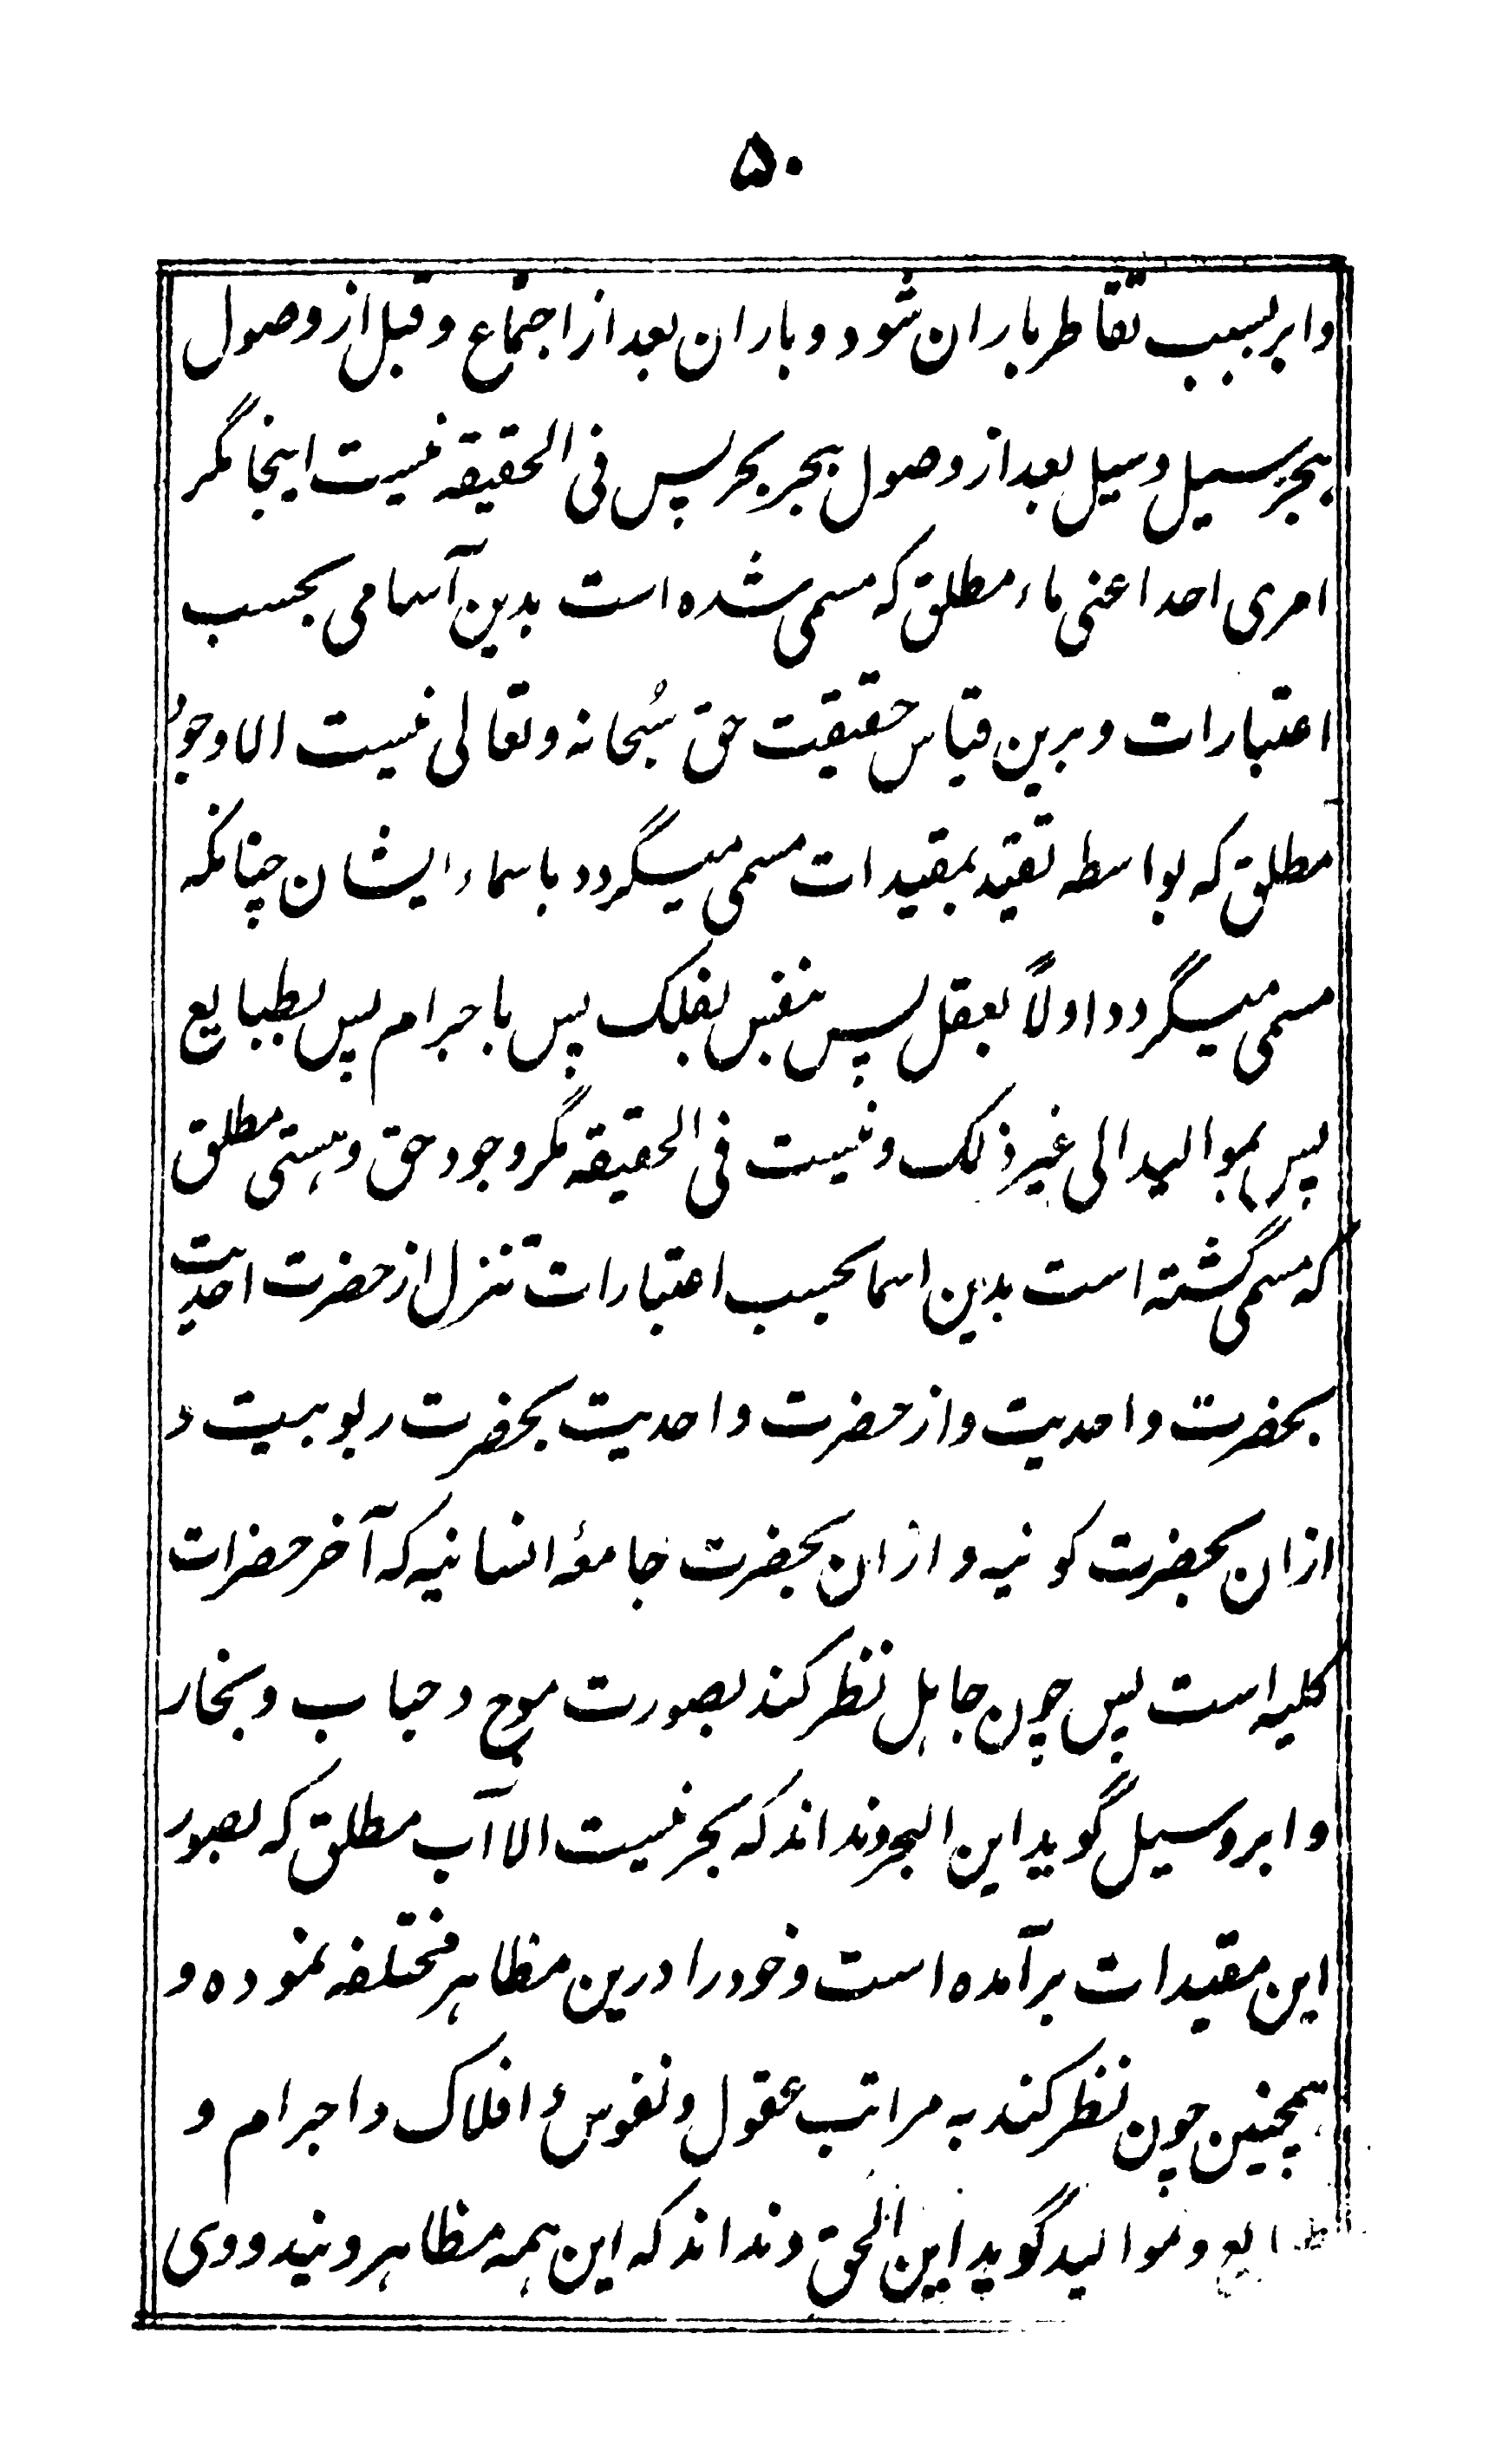 ۵۰
وابر بسبب تقاطر باران شود و باران بعد از اجتماع و قبل از وصول
ببحر سیل و سیل بعد از وصول ببحر بحر پس فی الحقیقه نیست اینجا مگر
امری احد اعنی ماء مطلق که مسمی شده است بدین آسامی بحسب
اعتبارات و برین قیاس حقیقت حق سُبحانه و تعالی نیست الا وجود
مطلق که بواسطه تقید بمقیدات مسمی میگردد باسماء ایشان چنانکه
مسمی میگردد اولاً بعقل پس بنفس بفلک پس باجرام پس بطبایع
پس بموالید الی غیر ذلک و نیست فی الحقیقه مگر وجود حق و هستی مطلق
که مسمی گشته است بدین اسما بحسب اعتبارات تنزل از حضرت احدیت
بحضرت واحدیت و از حضرت واحدیت بحضرت ربوبیت و
ازان بحضرت کونیه و ازان بحضرت جامعهٔ انسانیه که آخر حضرات
کلیه است پس چون جاهل نظر کند بصورت موج و حباب و بخار
و ابر و سیل گوید این البحر و نداند که بحر نیست الا آب مطلق که بصور
این مقیدات برآمده است و خود را درین مظاهر مختلفه نموده و
همچنین چون نظر کند به مراتب عقول و نفوس و افلاک و اجرام و
طبایع و موالید گوید این الحق و نداند که این همه مظاهر ویند و وی